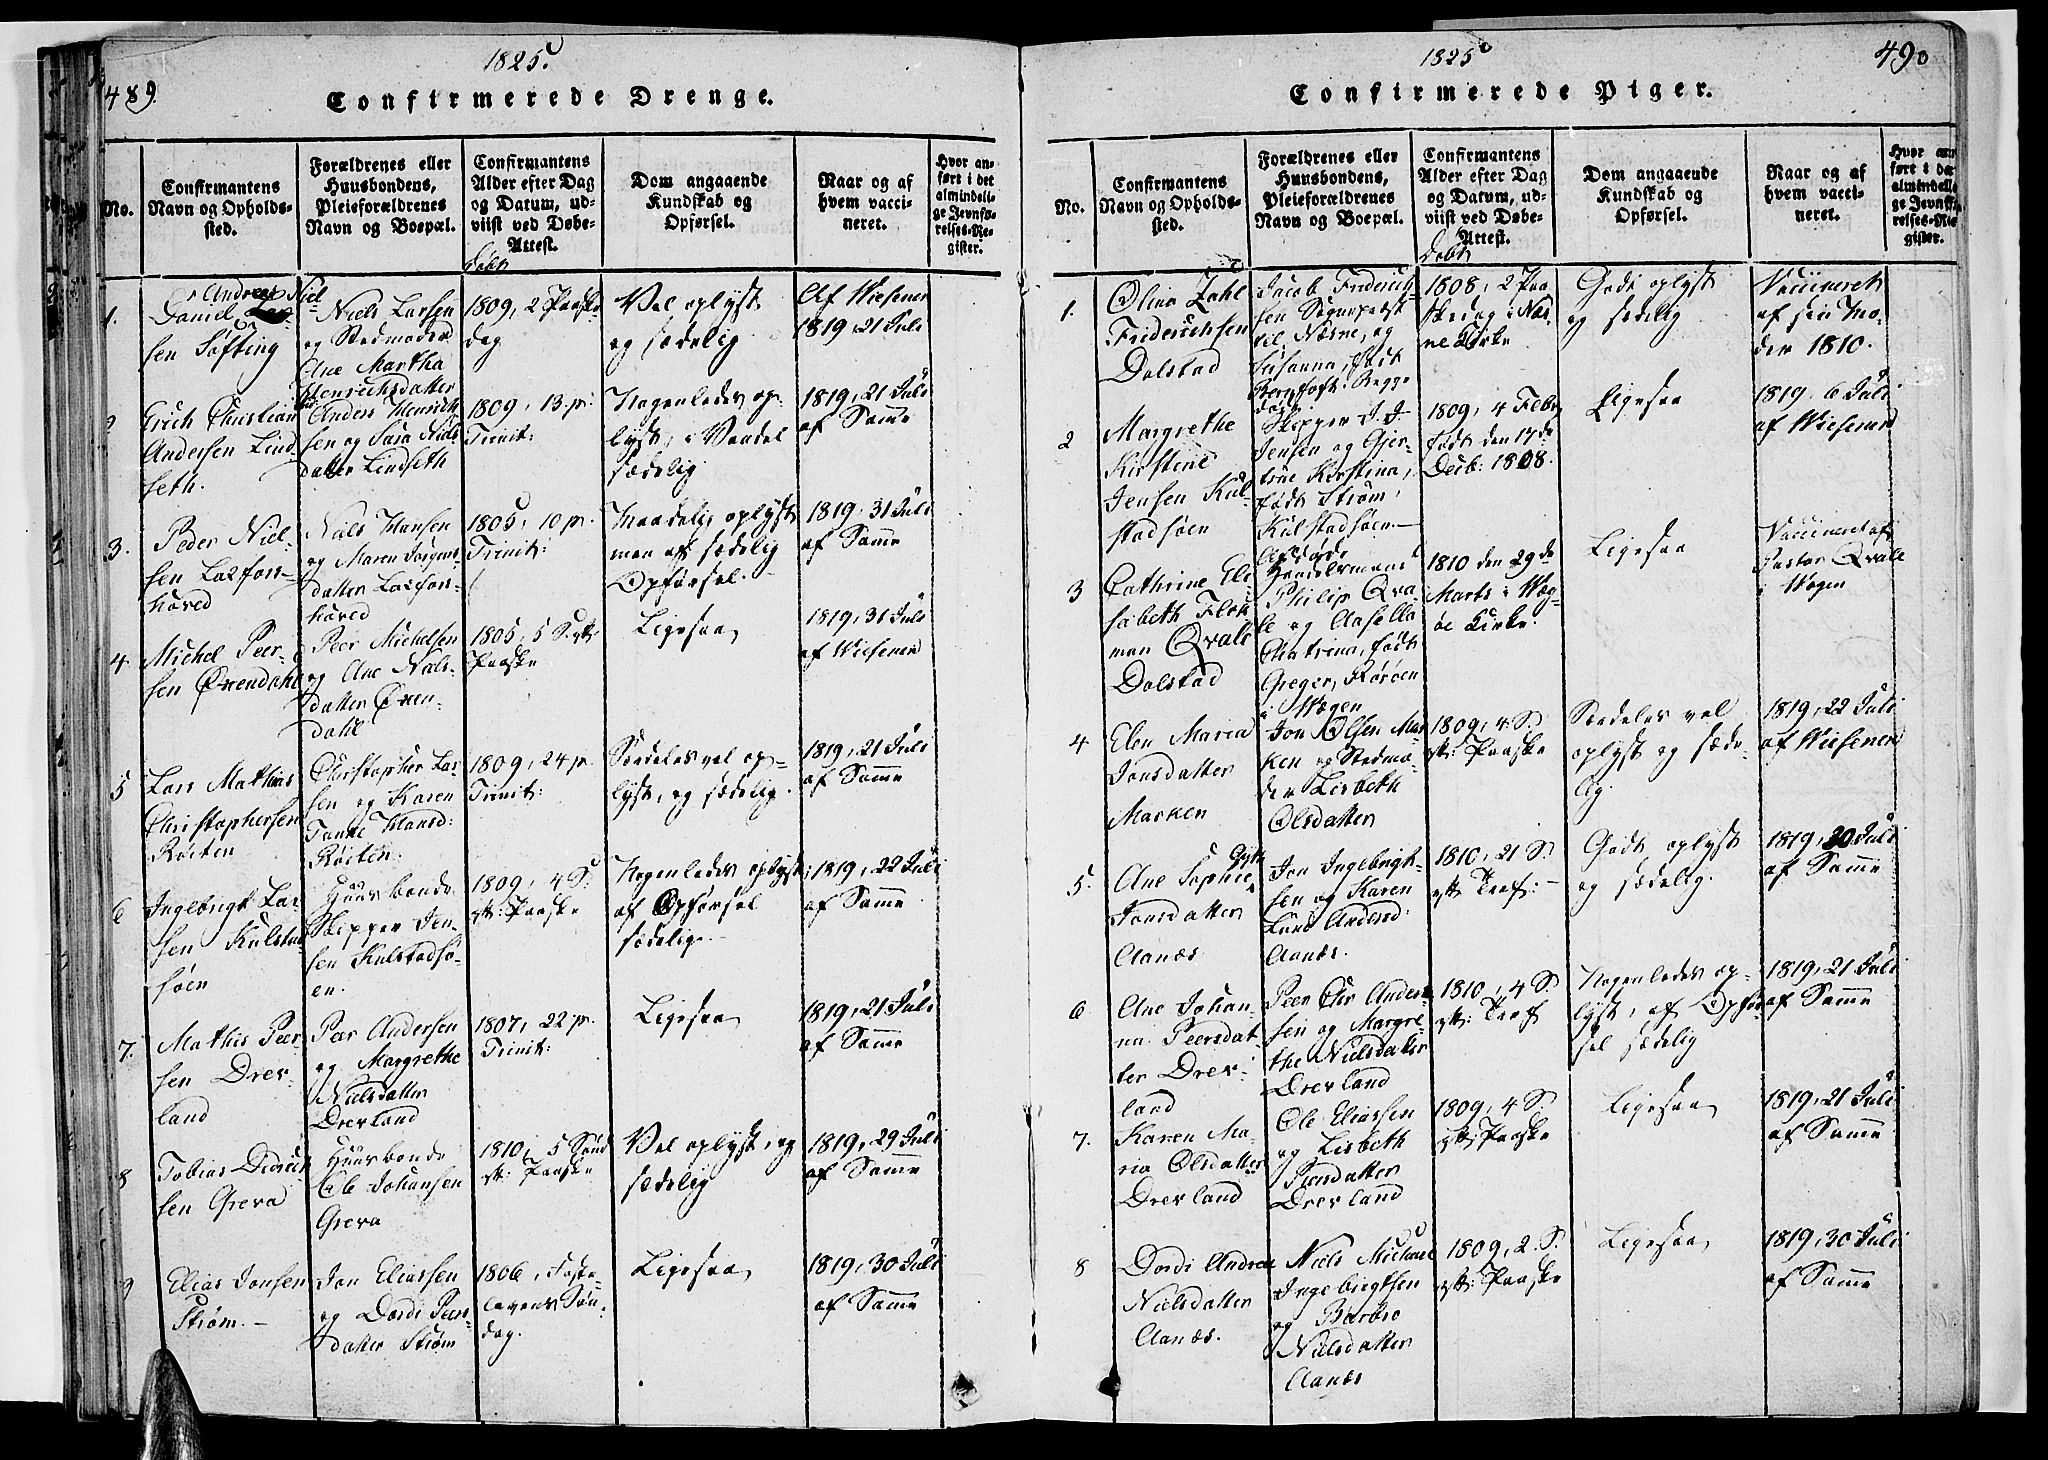 1825.
489.
Confirmerede Drenge.
No.
Confirmantens
Navn og Opholds-
sted.
Forældrenes eller
Huusbondens,
Pleieforældrenes
Navn og Boepæl.
Confirmantens
Alder efter Dag
og Datum, ud-
viist ved Døbe-
Attest.
døbt
Dom angaaende
Kundskab og
Opførsel.
Naar og af
hvem vacci-
neret.
Hvor an-
ført i det
almindeli-
ge Jevnfø-
relses-Re-
gister.
1.
Andreas Niel-
Daniel
sen Søfting
Niels Larsen
og Stedmoder
Ane Martha
Henrichsdatter
1809, 2 Paaske-
dag
Vel oplyst
og sædelig
Af Wiesener
1819, 21 Juli
2
Erich Christian
Andersen Lind-
seth.
Anders Henrich-
sen og Sara Niels-
datter Lindseth
1809, 13. p:
Trinit:
Nogenledes op-
lyst, i Vandel
sædelig
1819, 21 Juli
af Samme
3.
Peder Niel-
sen Laxfors-
hoved
Niels Hansen
og Maren Jørgens-
datter Laxfors-
hoved
1805, 10 p.
Trinit:
Maadelig oplyst
men af sædelig
Opførsel.
1819, 31 Juli
af Samme
4.
Michel Peer-
sen Øxendahl
Peer Michelsen
og Ane Niels-
datter Øxen-
dahl
1805, 5 S. eft:
Paaske
Ligesaa
1819, 31 Juli
af Wiesener
5
Lars Mathias
Christophersen
Røiten
Christopher Lar-
sen og Karen
Tanke Hansd:
Røiten.
1809, 24 p.
Trinit:
Særdeles vel op-
lyst, og sædelig.
1819, 21 Juli
af Samme
6
Ingebrigt Lar-
sen Kulstad-
søen
Huusbonde
Skipper Jen-
sen Kulstadsø-
en.
1809, 4 S:
eft: Paaske
Nogenledes oplyst
af Opførsel
sædelig
1819, 22 Juli
af Samme
7.
Mathis Peer-
sen Drev-
land
Peer Andersen
og Margrethe
Nielsdatter
Drevland
1807, 22 p.
Trinit:
Ligesaa
1819, 21 Juli
af Samme
8
Tobias Didrich-
sen Greva
Huusbonde
Ole Johansen
Greva
1810, 5 Sønd
eft: Paaske
Vel oplyst, og
sædelig
1819, 29 Juli
af Samme
9
Elias Jonsen
Strøm.
Jon Eliassen
og Dordi Peers-
datter Strøm
1806, Faste-
lavens Søn-
dag.
Ligesaa
1819, 30 Juli
af Samme
1825
490
Confirmerede Piger.
No.
Confirmantens
Navn og Opholds-
sted.
Forældrenes eller
Huusbondens,
Pleieforældrenes
Navn og Boepæl.
Confirmantens
Alder efter Dag
og Datum, ud-
viist ved Døbe-
Attest.
døbt
Dom angaaende
Kundskab og
Opførsel.
Naar og af
hvem vacci-
neret.
Hvor an-
ført i det
almindeli-
ge Jevnfø-
relses-Re-
gister.
1.
Olina Zahl
Friderichsen
Dolstad
Jacob Friderich-
sen Sognepræst
til Næsne, og
Susanna, født
1808, 2 Paa-
skedag i Næs-
ne Kirke
Godt oplyst
og sædelig
Vaccineret
af sin Mo-
der 1810.
2
Margrethe
Kirstine
Jensen Kul-
stadsøen
Skipper J. J.
Jensen og Gjer-
true Kirstina,
født Strøm,
Kulstadsøen.
1809, 4 Febr
født den 17de
Decb: 1808.
Ligesaa
1819. 6 Juli
af Wiesener
3
Cathrine Eli-
sabeth Flok-
man Qvale
Dolstad
Afdøde
Handelsmand
Philip Qva-
le og Aasella
Catrina, født
Greger, Rørøen
i Wægen
1810 den 29de
Marts i Wæg-
øe Kirke.
Ligesaa
Vaccineret af
Pastor Qvale
i Wægen
4
Elen Maria
Jonsdatter
Marken
Jon Olsen Mar-
ken og Stedmo-
der Lisbeth
Olsdatter
1809, 4. S.
eft: Paaske
Særdeles vel
oplyst og sæde-
lig.
1819, 22 Juli
af Wiesener
5.
Ane Sophie
Jonsdatter
Aanæs
Jon Ingebrigt-
sen og Karen
Lund Andersd:
Aanæs.
1810, 21 S.
eft Tref:
Godt oplyst
og sædelig.
1819, 20 Juli
af Samme
6
Ane Johan-
na Peersdat-
ter Drev-
land
Peer Chr Ander-
sen og Margre-
the Nielsdatter
Drevland
1810, 4 S.
eft: Tref
Nogenledes op-
lyst, af Opfør-
sel sædelig
1819, 21 Juli
af Samme
7.
Karen Ma-
ria Olsdatter
Drevland
Ole Eliassen
og Lisbeth
Peersdatter
Drevland
1809, 4 S.
eft: Paaske
Ligesaa
1819, 21 Juli
af Samme
8
Dordi Andrea
Nielsdatter
Aanæs.
Niels Michael
Ingebrigtsen
og Barbro
Nielsdatter
Aanæs
1809, 2. S.
eft: Paaske
Ligesaa
1819, 30 Juli
af Samme